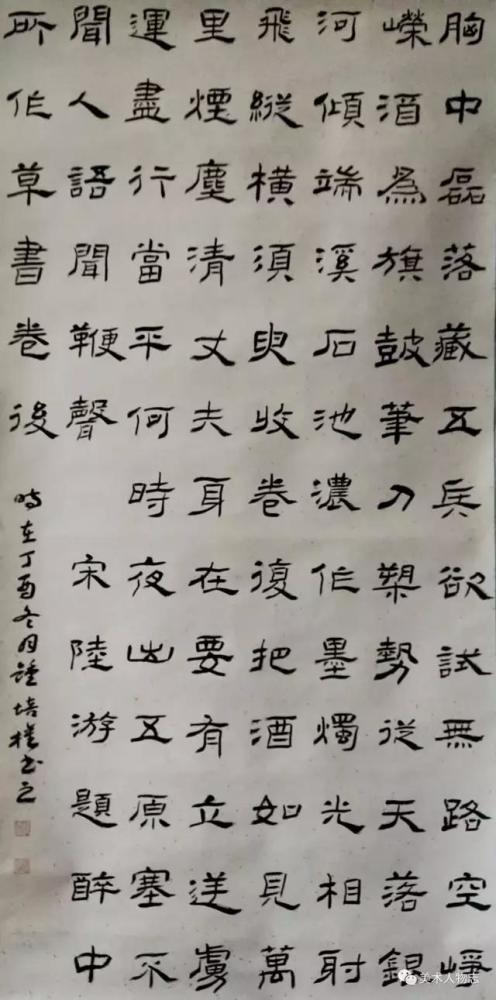 胸中磊落藏五兵欲試無路空崢
嶸酒為旗鼓筆刀槊勢從天落銀
河傾端溪石池濃作墨燭光相射
飛縱橫須臾收卷復把酒如見萬
里煙塵清丈夫身在要有立逆虜
運盡行當平何時夜出五原塞不
聞人語聞鞭聲 宋陸游題醉中
所作草書卷後
時在丁酉冬月鐘培書之
美术人物志